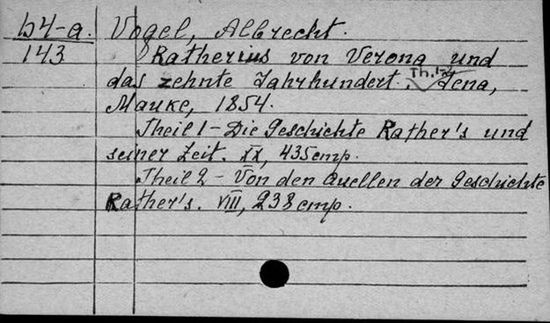 В4-а. Vogel, Albrecht.
143 Ratherius von Verona und
das zehnte Jahrhundert. Th.1-2 Jena,
Mauke, 1854.
Theil 1 - Die Geschichte Rather's und
seiner Zeit. XX, 435 cmp.
Theil 2 - Von den Quellen der Geschichte
Rather's. VIII, 238 cmp.